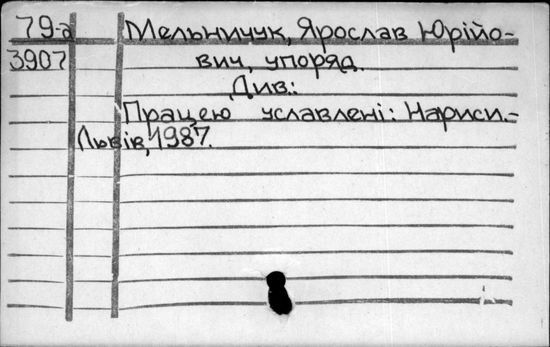 79-а Мельничук, Ярослав Юрійо-
3907 вич, упоряд.
Див.:
Працею уславлені: Нариси.-
Львів, 1987.